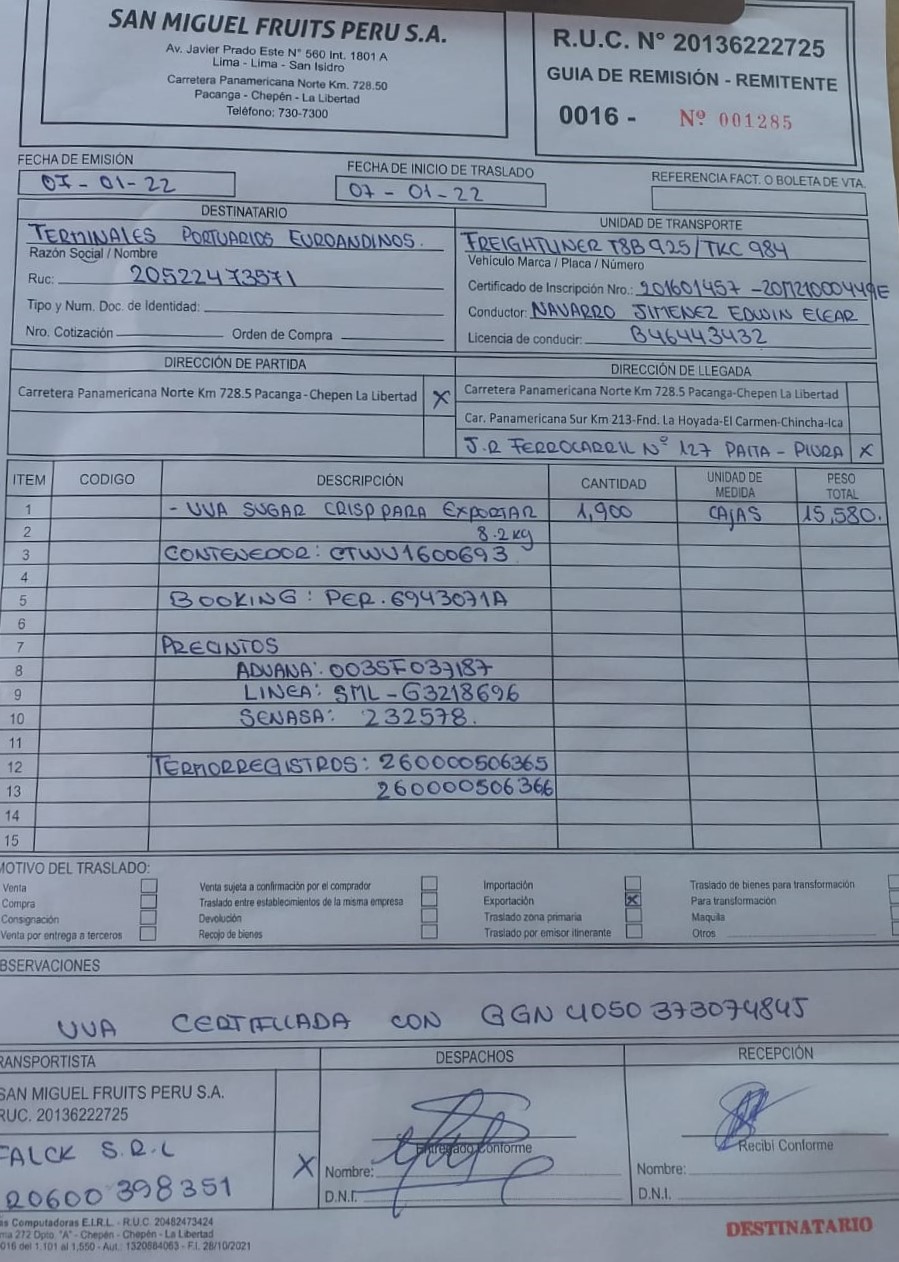 SAN MIGUEL FRUITS PERU S.A.
Av. Javier Prado Este N° 560 Int. 1801 A
Lima - Lima - San Isidro
Carretera Panamericana Norte Km. 728.50
Pacanga - Chepén - La Libertad
Teléfono: 730-7300
R.U.C. N° 20136222725
GUIA DE REMISIÓN - REMITENTE
0016 - Nº 001285
FECHA DE EMISIÓN
07-01-22
FECHA DE INICIO DE TRASLADO
07-01-22
REFERENCIA FACT. O BOLETA DE VTA.
DESTINATARIO
TERMINALES PORTUARIOS EUROANDINOS.
Razón Social / Nombre
Ruc: 20522473571
Tipo y Num. Doc. de Identidad:
Nro. Cotización Orden de Compra
UNIDAD DE TRANSPORTE
FREIGHTLINER T8B925/TKC984
Vehículo Marca / Placa / Número
Certificado de Inscripción Nro.: 201601457 -
Conductor: NAVARRO JIMENEZ EDWIN
Licencia de conducir: B46443432
DIRECCIÓN DE PARTIDA
Carretera Panamericana Norte Km 728.5 Pacanga-Chepen La Libertad X
DIRECCIÓN DE LLEGADA
Carretera Panamericana Norte Km 728.5 Pacanga-Chepen La Libertad
Car. Panamericana Sur Km 213-Fnd. La Hoyada-El Carmen-Chincha-Ica
J.R FERROCARRIL Nº 127 PAITA - PIURA X
ITEM CODIGO DESCRIPCIÓN CANTIDAD UNIDAD DE MEDIDA PESO TOTAL
1 - UVA SUGAR CRISP PARA EXPORTAR 1,900 CAJAS 15,580.
2 8.2 kg
3 CONTENEDOR: CTWU1600693
4
5 BOOKING: PER.6943071A
6
7 PRECINTOS
8 ADUANA: 003SF037187
9 LINEA: SML-G3218696
10 SENASA: 232578.
11
12 TERMORREGISTROS: 260000506365
13 260000506366
14
15
MOTIVO DEL TRASLADO:
Venta
Compra
Consignación
Venta por entrega a terceros
Venta sujeta a confirmación por el comprador
Traslado entre establecimientos de la misma empresa
Devolución
Recojo de bienes
Importación
Exportación X
Traslado zona primaria
Traslado por emisor itinerante
Traslado de bienes para transformación
Para transformación
Maquila
Otros
BSERVACIONES
UVA CERTIFICADA CON GGN 4050373074845
RANSPORTISTA
SAN MIGUEL FRUITS PERU S.A.
RUC. 20136222725
FALCK S.R.L
20600398351 X
DESPACHOS
Entregado Conforme
Nombre:
D.N.I.
RECEPCIÓN
Recibí Conforme
Nombre:
D.N.I.
as Computadoras E.I.R.L. - R.U.C. 20482473424
ma 272 Dpto. "A" - Chepén - Chepén - La Libertad
016 del 1,101 al 1,550 - Aut.: 1320884063 - F.I. 28/10/2021
DESTINATARIO